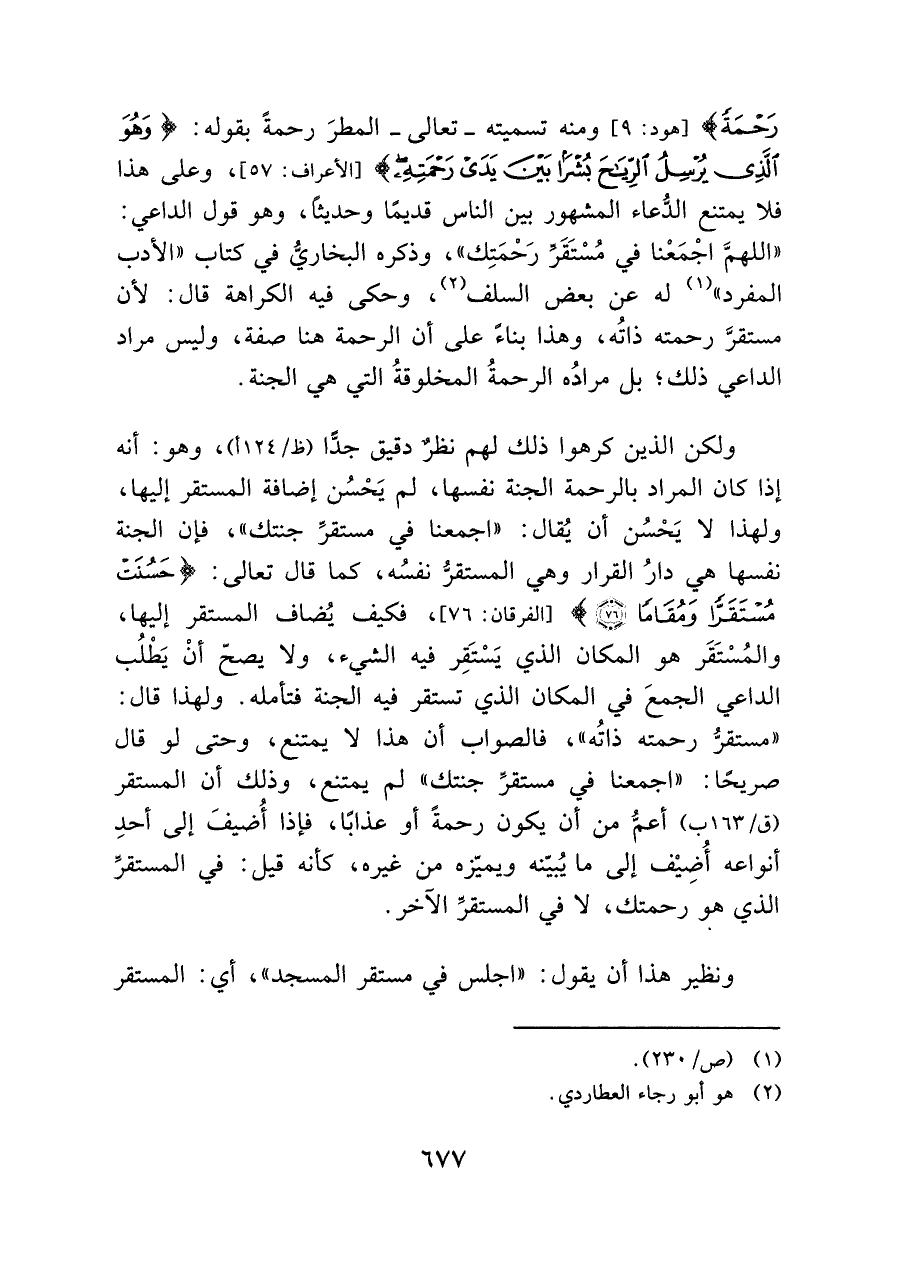 رَحْمَةً﴾ [هود: ٩] ومنه تسميته ـ تعالى ـ المطرَ رحمةً بقوله: ﴿ وَهُوَ
ٱلَّذِى يُرْسِلُ ٱلرِّيَٰحَ بُشْرًۢا بَيْنَ يَدَىْ رَحْمَتِهِۦ ﴾ [الأعراف: ٥٧]، وعلى هذا
فلا يمتنع الدُّعاء المشهور بين الناس قديمًا وحديثًا، وهو قول الداعي:
«اللهمَّ اجْمَعْنا في مُسْتَقَرِّ رَحْمَتِك»، وذكره البخاريُّ في كتاب «الأدب
المفرد»(١) له عن بعض السلف(٢)، وحكى فيه الكراهة قال: لأن
مستقرَّ رحمته ذاتُه، وهذا بناءً على أن الرحمة هنا صفة، وليس مراد
الداعي ذلك؛ بل مرادُه الرحمةُ المخلوقةُ التي هي الجنة.
ولكن الذين كرهوا ذلك لهم نظرٌ دقيق جدًّا (ظ/١٢٤أ)، وهو: أنه
إذا كان المراد بالرحمة الجنة نفسها، لم يَحْسُن إضافة المستقر إليها،
ولهذا لا يَحْسُن أن يُقال: «اجمعنا في مستقرِّ جنتك»، فإن الجنة
نفسها هي دارُ القرار وهي المستقرُّ نفسُه، كما قال تعالى: ﴿حَسُنَتْ
مُسْتَقَرًّا وَمُقَامًا ٧٦ ﴾ [الفرقان: ٧٦]، فكيف يُضاف المستقر إليها،
والمُسْتَقَر هو المكان الذي يَسْتَقِر فيه الشيء، ولا يصحّ أنْ يَطْلُب
الداعي الجمعَ في المكان الذي تستقر فيه الجنة فتأمله. ولهذا قال:
«مستقرُّ رحمته ذاتُه»، فالصواب أن هذا لا يمتنع، وحتى لو قال
صريحًا: «اجمعنا في مستقرِّ جنتك» لم يمتنع، وذلك أن المستقر
(ق/١٦٣ب) أعمُّ من أن يكون رحمةً أو عذابًا، فإذا أُضيفَ إلى أحدِ
أنواعه أُضِيْف إلى ما يُبيّنه ويميّزه من غيره، كأنه قيل: في المستقرِّ
الذي هو رحمتك، لا في المستقرِّ الآخر.
ونظير هذا أن يقول: «اجلس في مستقر المسجد»، أي: المستقر
(١) (ص/٢٣٠).
(٢) هو أبو رجاء العطاردي.
٦٧٧